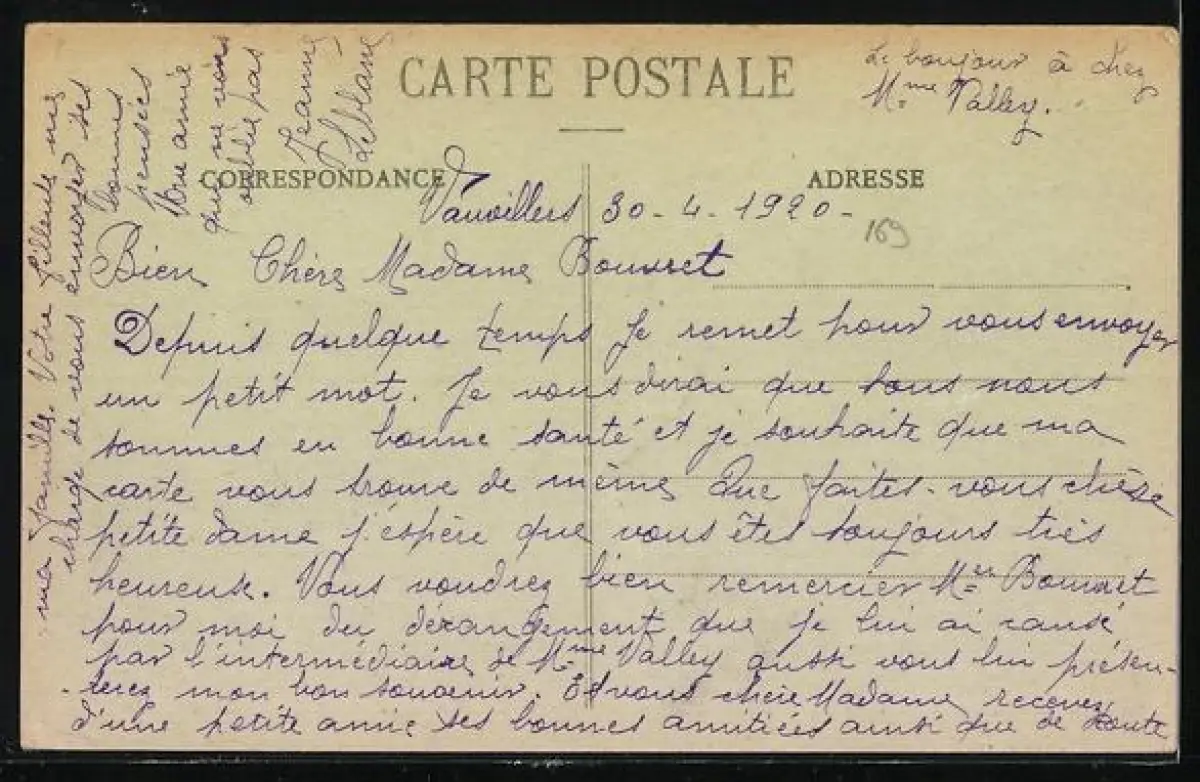 CARTE POSTALE
Le boujour à chez
Mme Valley.
CORRESPONDANCE
ADRESSE
Vauvillers 30-4-1920-
169
Bien Chère Madame Bouvret
Depuis quelque temps Je remet pour vous envoyer
un petit mot. Je vous dirai que tous nous
sommes en bonne santé et je souhaite que ma
carte vous trouve de même Que faites-vous chère
petite dame j'espère que vous êtes toujours très
heureuse. Vous voudrez bien remercier Bouvret
pour moi du dérangement que je lui ai causé
par l'intermédiaire de Mme Valley aussi vous lui présen-
terez mon bon souvenir. Et vous chère Madame recevez
d'une petite amie ses bonnes amitiées ainsi que de toute
ma famille. Votre filleule me
charge de vous envoyer ses
bonnes
pensées
Une amie
qui ne vous
oublie pas
Jeanne
Leblanc